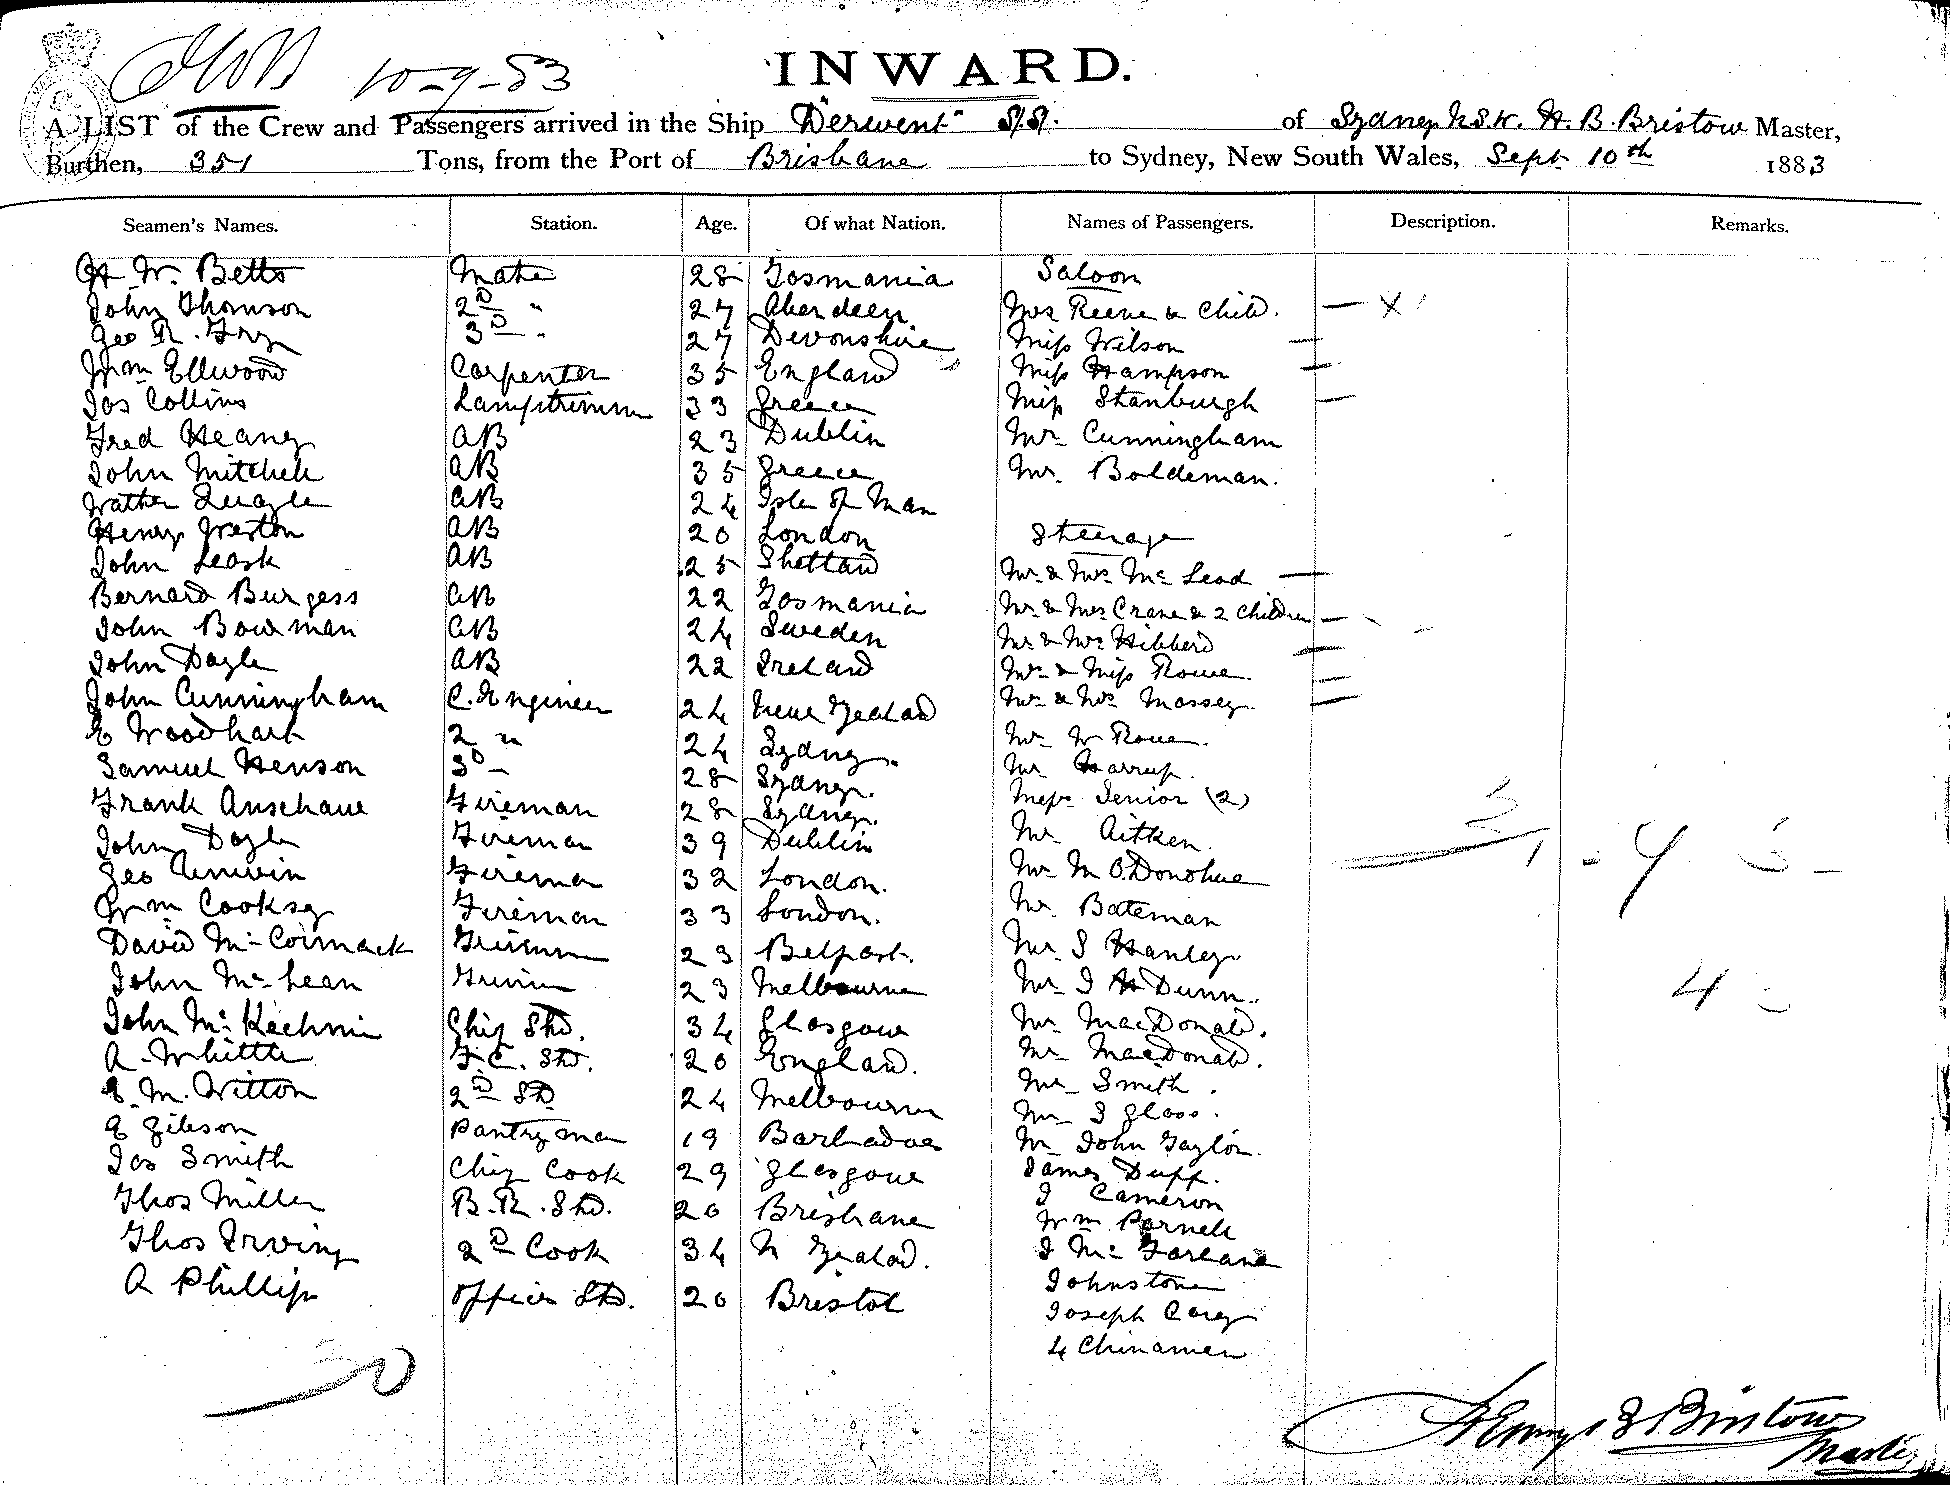 10-9-83
INWARD.
A LIST of the Crew and Passengers arrived in the Ship "Derwent" S.S. of Sydney N.S.W. H. B. Bristow Master,
Burthen, 351 Tons, from the Port of Brisbane to Sydney, New South Wales, Sept 10th 1883
Seamen's Names. Station. Age. Of what Nation. Names of Passengers. Description. Remarks.
W. Betts Mate 28 Tasmania Saloon
John Thomson 2D " 27 Aberdeen Mrs Reene & Child. — X
Geo R. Fry 3D " 27 Devonshire Miss Wilson —
Wm Ellwood Carpenter 35 England Miss Hampson —
Jas Collins Lamptrimmer 33 Greece Miss Stanburgh —
Fred Heaney AB 23 Dublin Mr Cunningham
John Mitchell AB 35 Greece Mr. Boldeman.
Walter Quayle AB 24 Isle of Man
Henry Weston AB 20 London Steerage
John Leask AB 25 Shetland Mr & Mrs Mc Leod —
Bernard Burgess AB 22 Tasmania Mr & Mrs Crane & 2 Children —
John Bowman AB 24 Sweden Mr & Mrs Hibberd —
John Doyle AB 22 Ireland Mr & Miss Rowe —
John Cunningham C. Engineer 24 New Zealand Mr & Mrs Massey —
E Woodhart 2 " 24 Sydney. Mr W Rowe.
Samuel Henson 3D — 28 Sydney. Mr Harrup.
Frank Anschaue Fireman 28 Sydney. Messrs Senior (2)
John Doyle Fireman 39 Dublin Mr Aitken.
Geo Unwin Fireman 32 London. Mr M O.Donohue
Wm Cooksey Fireman 33 London. Mr. Bateman
David Mc Cormack Trimmer 23 Belfast. Mr J Hanley
John Mc Lean Trimmer 23 Melbourne Mr J H Dunn.
John Mc Kechnie Chief Std. 34 Glasgow Mr MacDonald.
A. Whittle F.C. Std. 20 England. Mr MacDonald.
E. M. Witton 2nd Std 24 Melbourne Mr Smith.
E Gibson Pantryman 19 Barbadoes Mr J Glass.
Jas Smith Chief Cook 29 Glasgow Mr John Taylor.
Thos Miller B.R. Std. 20 Brisbane James Duff.
J Cameron
Thos Irving 2D Cook 34 N Zealand. Wm Parnell
J Mc Farlane
A Phillips Officers Std. 20 Bristol Johnstone
Joseph Carey
4 Chinamen
30
Henry B Bristow
Master